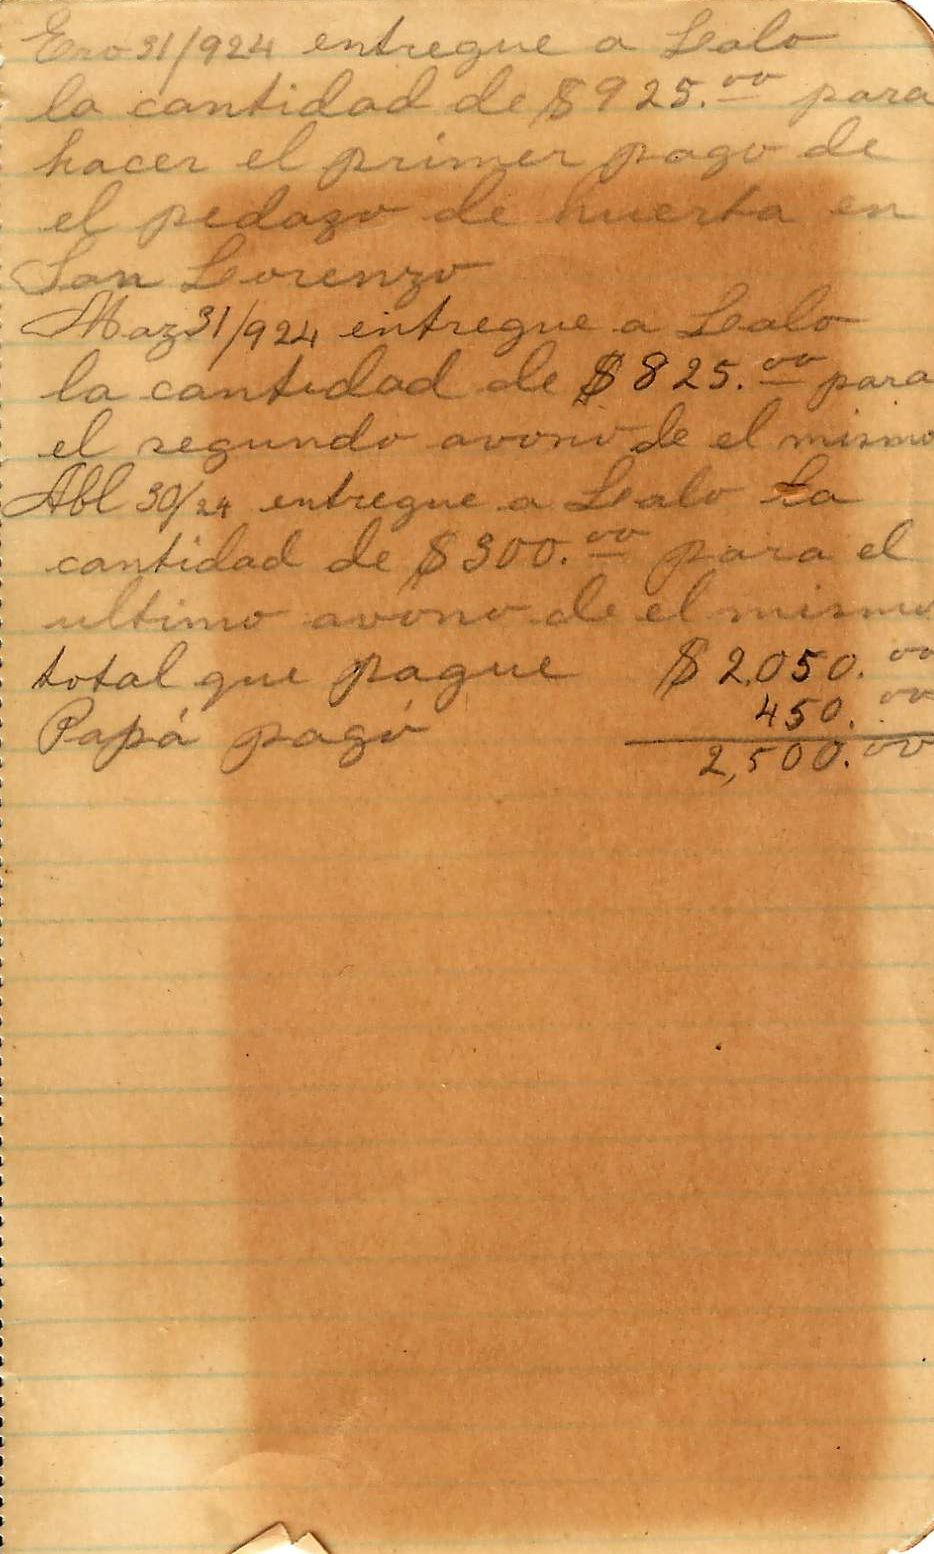 Ero 31/924 entregue a Lalo
la cantidad de $925.00 para
hacer el primer pago de
el pedazo de huerta en
San Lorenzo
Maz 31/924 entregue a Lalo
la cantidad de $825.00 para
el segundo avono de el mismo
Abl 30/24 entregue a Lalo La
cantidad de $300.00 para el
ultimo avono de el mismo
total que pague $2,050.00
Papá pagó 450.00
2,500.00